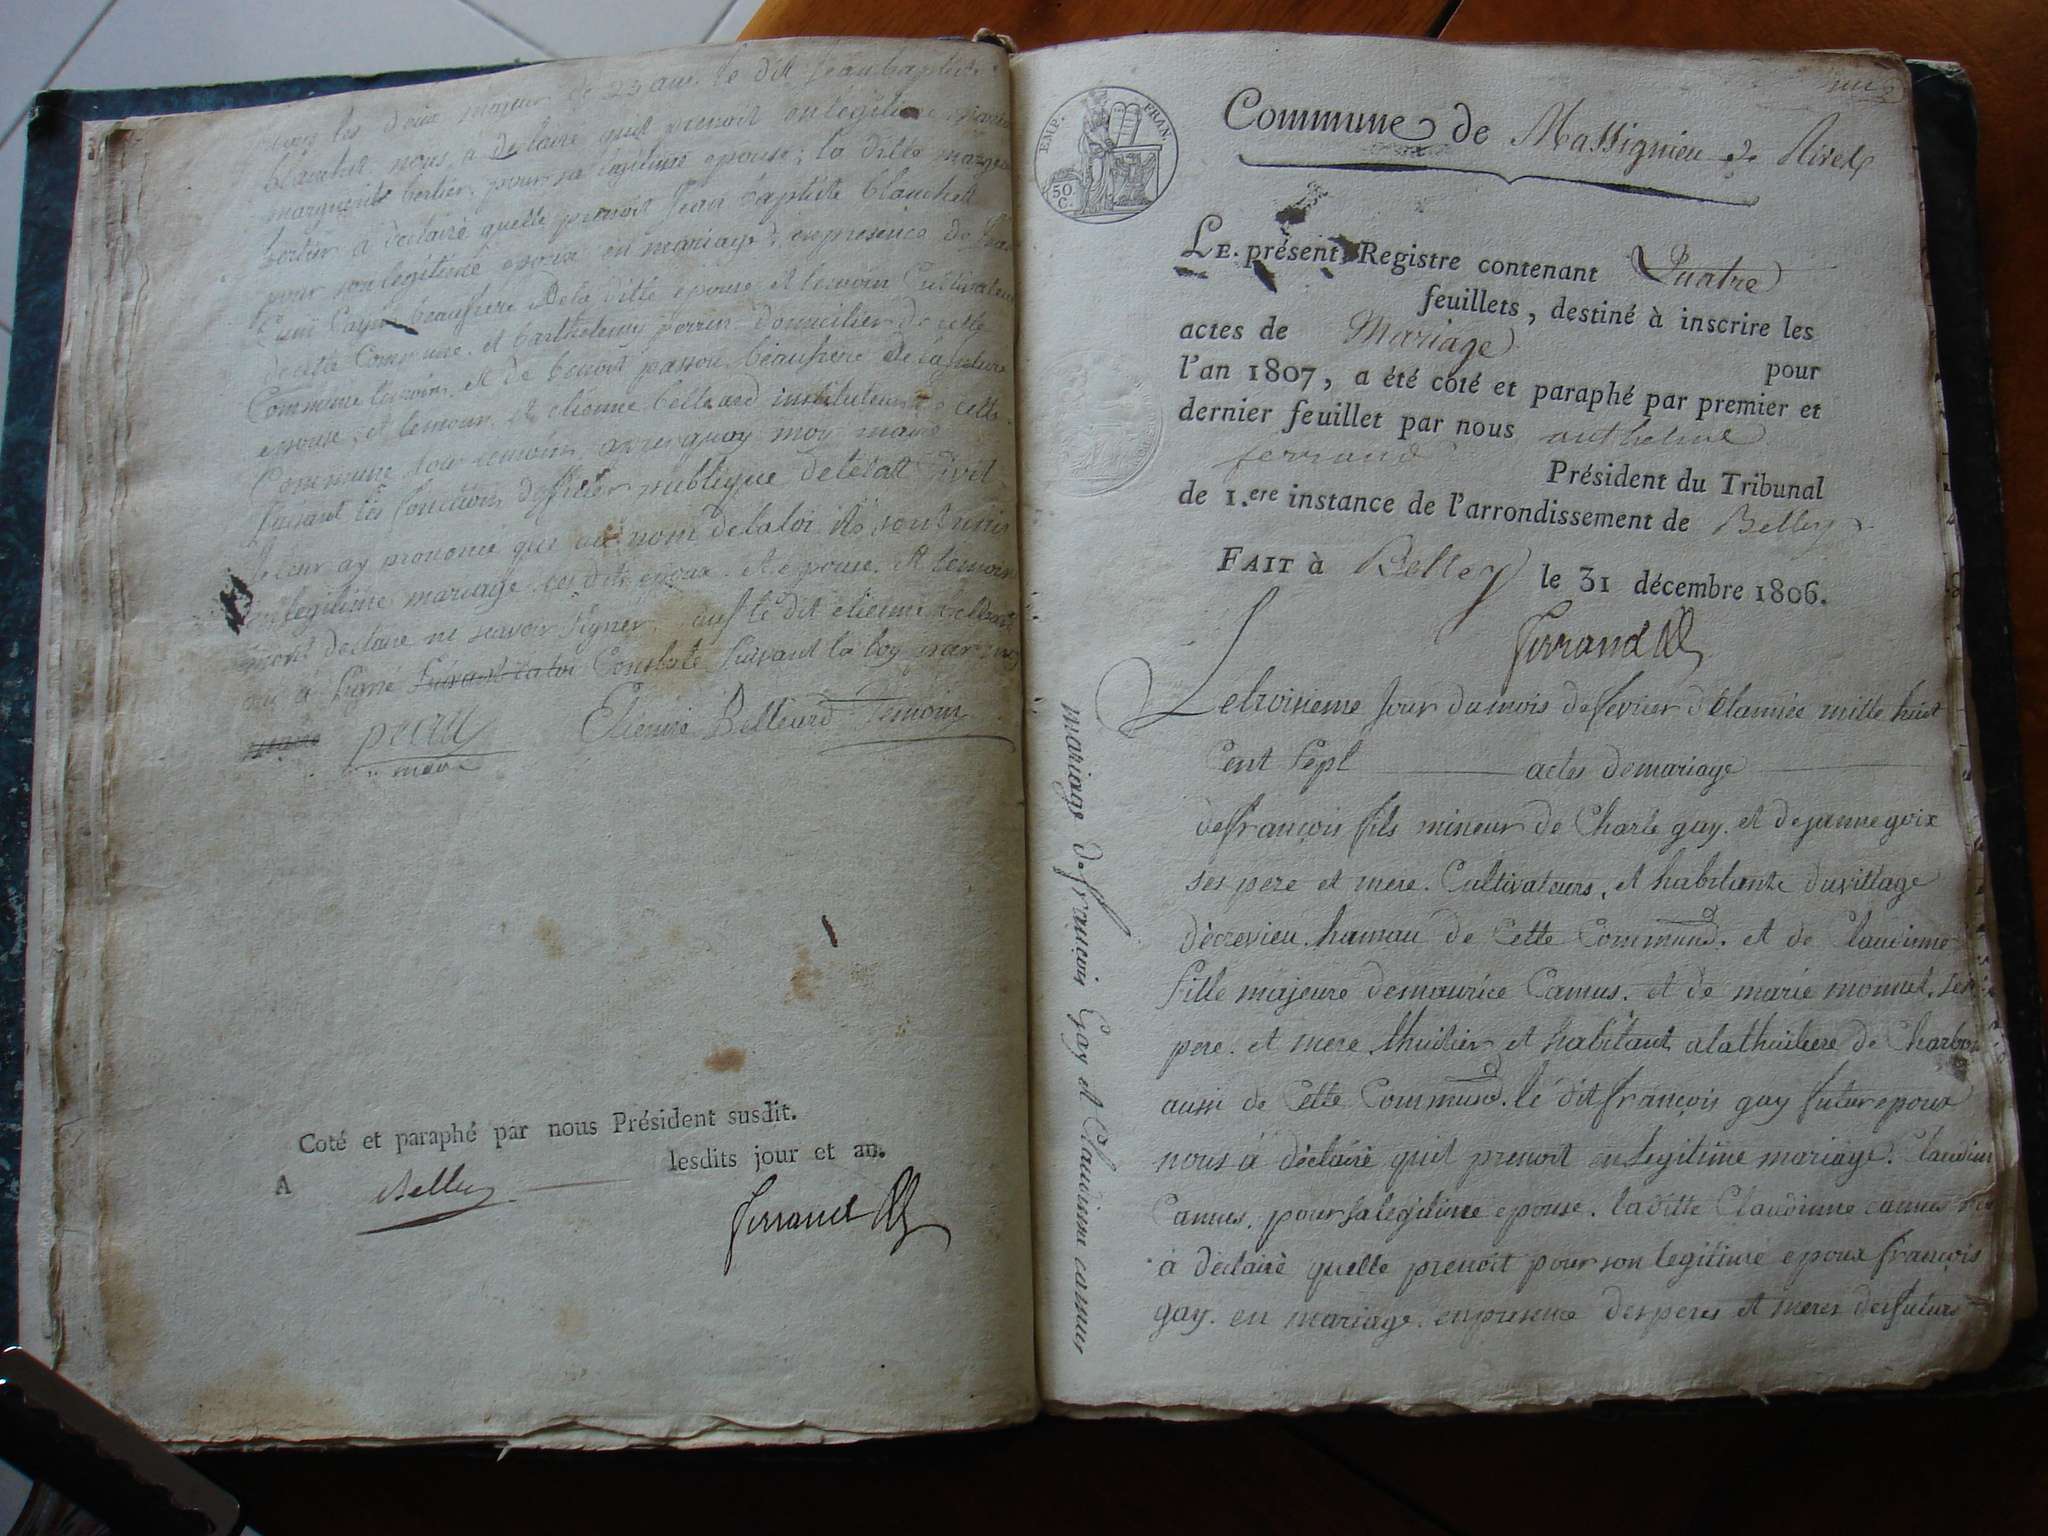 les deux majeur de 23 ans. le dit jean baptiste
blanchet nous a declaré quil prenoit en legitime
marguerite bertier pour sa legitime epouse; la ditte
bertier a declaré quelle prenoit Jean baptiste blanchet
pour son legitime epoux en mariage, en presence de
beaufrere de la ditte epouse et temoin Cultivateur
de cette Commune. et barthelemy perrin domicilier de cette
Commune temoin. et de benoit passon beaufrere de la future
epouse, et temoin. et etienne belleard instituteur de cette
Commune tous temoins. apres quoy moy maire
faisant les fonctions dofficier publique de letat Civil
Je leur ay prononcé que au nom de la loi ils sont unis
en legitime mariage. les dits epoux. et epouse. et temoin
mont declaré ne scavoir signer. auf le dit etienne belleard
qui a signé suivant la loi Constaté suivant la loy par moy
maire
Etienne Belleard Temoin
maire
Coté et paraphé par nous Président susdit.
lesdits jour et an.
A Belley
Ferrand
EMP. FRAN.
50 C.
Commune de Massignieu de Rives
LE présent Registre contenant Quatre
feuillets, destiné à inscrire les
actes de Mariage pour
l'an 1807, a été coté et paraphé par premier et
dernier feuillet par nous anthelme
ferrand
Président du Tribunal
de 1.ere instance de l'arrondissement de Belley
FAIT à Belley le 31 décembre 1806.
Ferrand
Mariage de françois Gay et Claudinne camus
Le troisieme Jour du mois de fevrier de lannée mille huit
Cent Sept actes de mariage
de françois fils mineur de Charle gay. et de jeanne goix
ses pere et mere. Cultivateurs, et habitants du village
d'ecrevieu. hamau de Cette Commune. et de Claudinne
fille majeure de maurice Camus. et de marie monnet. ses
pere. et mere. thuilier et habitant a la thuiliere de Charbon
aussi de Cette Commune. le dit françois gay futur epoux
nous a déclaré quil prenoit en legitime mariage. Claudinne
Camus. pour sa legitime epouse. la ditte Claudinne camus
a declaré quelle prenoit pour son legitime epoux françois
gay. en mariage. en presence des peres et meres des futurs